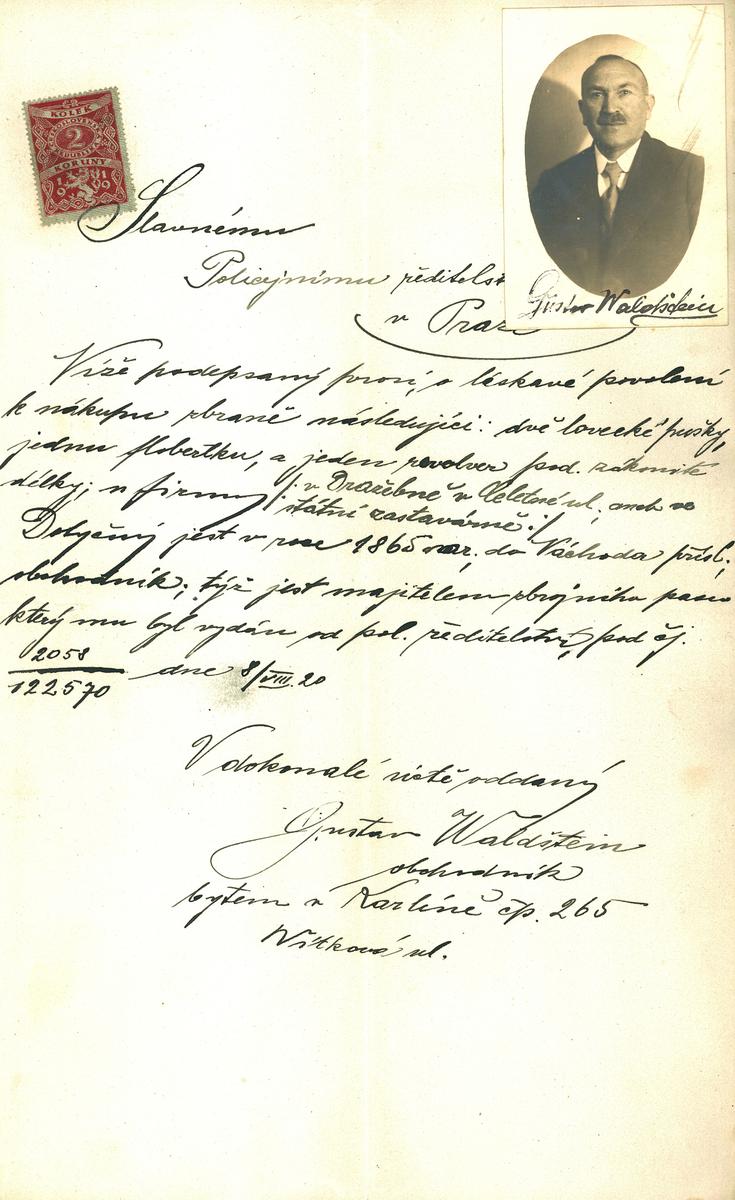 ČR
KOLEK
ČESKOSLOVENSKÁ
2
REPUBLIKA
KORUNY
1919
Slavnému
Policejnímu ředitelst
v Praze
Gustav Waldštein
Víže podepsaný prosí, o láskavé povolení
k nákupu zbraně následující: dvě lovecké pušky,
jednu flobertku, a jeden revolver pod. zákonité
délky; u firmy /: v Dražebně v Celetné ul., aneb ve
státní zastavárně :/
Dotyčný jest v roce 1865 nar., do Náchoda přísl.;
obchodník; týž jest majitelem zbrojního pasu
který mu byl vydán od pol. ředitelství, pod čj.
2058
122570 dne 8/VIII. 20
V dokonalé úctě oddaný
Gustav Waldštein
obchodník
bytem v Karlíně čp. 265
Wítková ul.